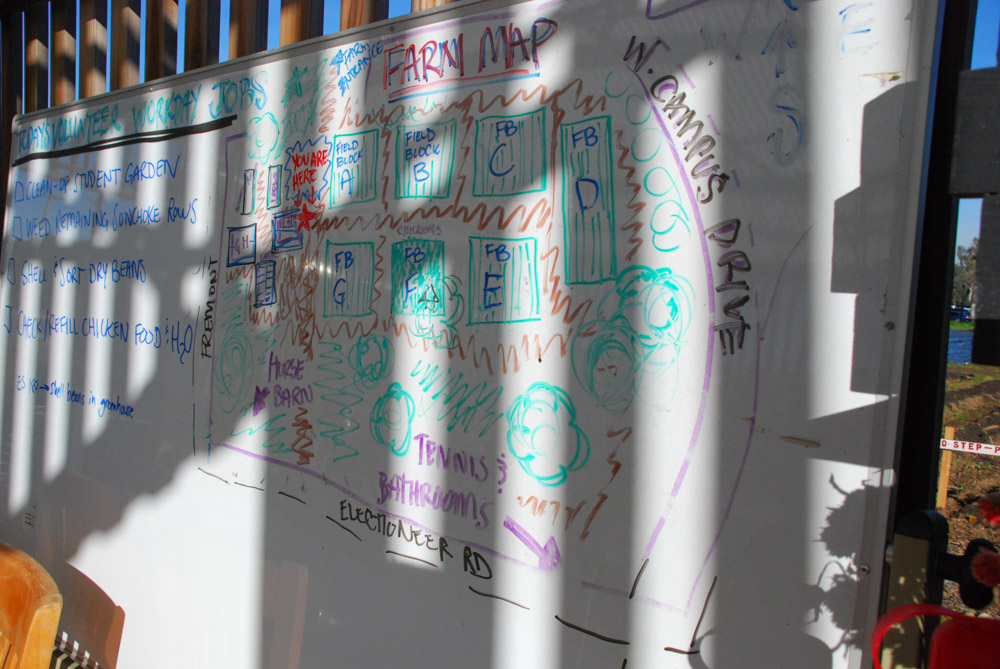 TODAY'S VOLUNTEER WORKDAY JOBS
CLEAN-UP STUDENT GARDEN
WEED REMAINING SUNCHOKE ROWS
SHELL & SORT DRY BEANS
CHECK/REFILL CHICKEN FOOD & H2O
shell beans in greenhouse
FARM MAP
FARM
ENTRANCE
YOU ARE
HERE
FIELD
BLOCK
A
FIELD
BLOCK
B
FB
C
FB
D
FB
G
FB
F
FB
E
FREMONT
HORSE
BARN
TENNIS &
BATHROOMS
ELECTIONEER RD
W. CAMPUS DRIVE
O STEP-P